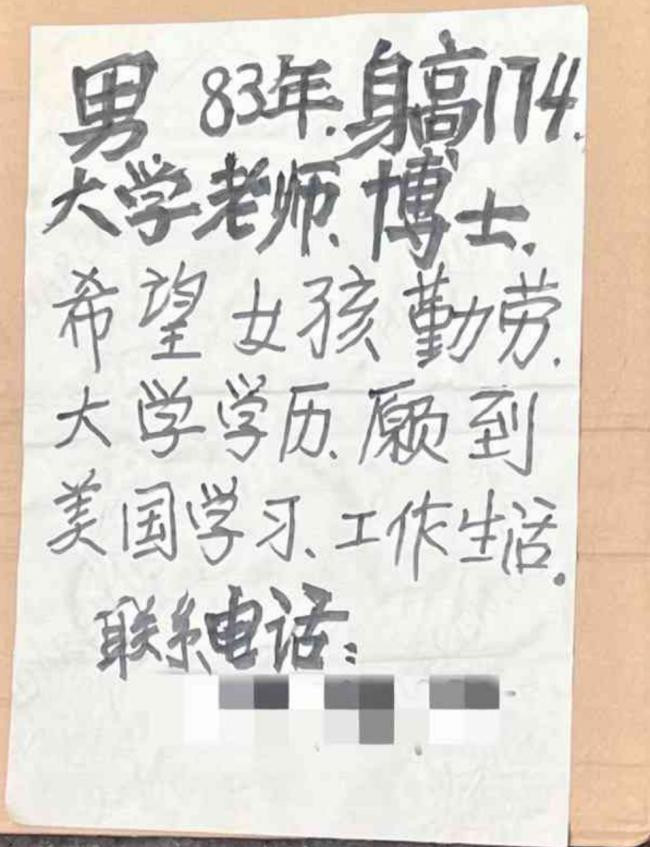 男 83年.身高174.
大学老师、博士.
希望女孩勤劳.
大学学历、愿到
美国学习、工作生活.
联系电话：